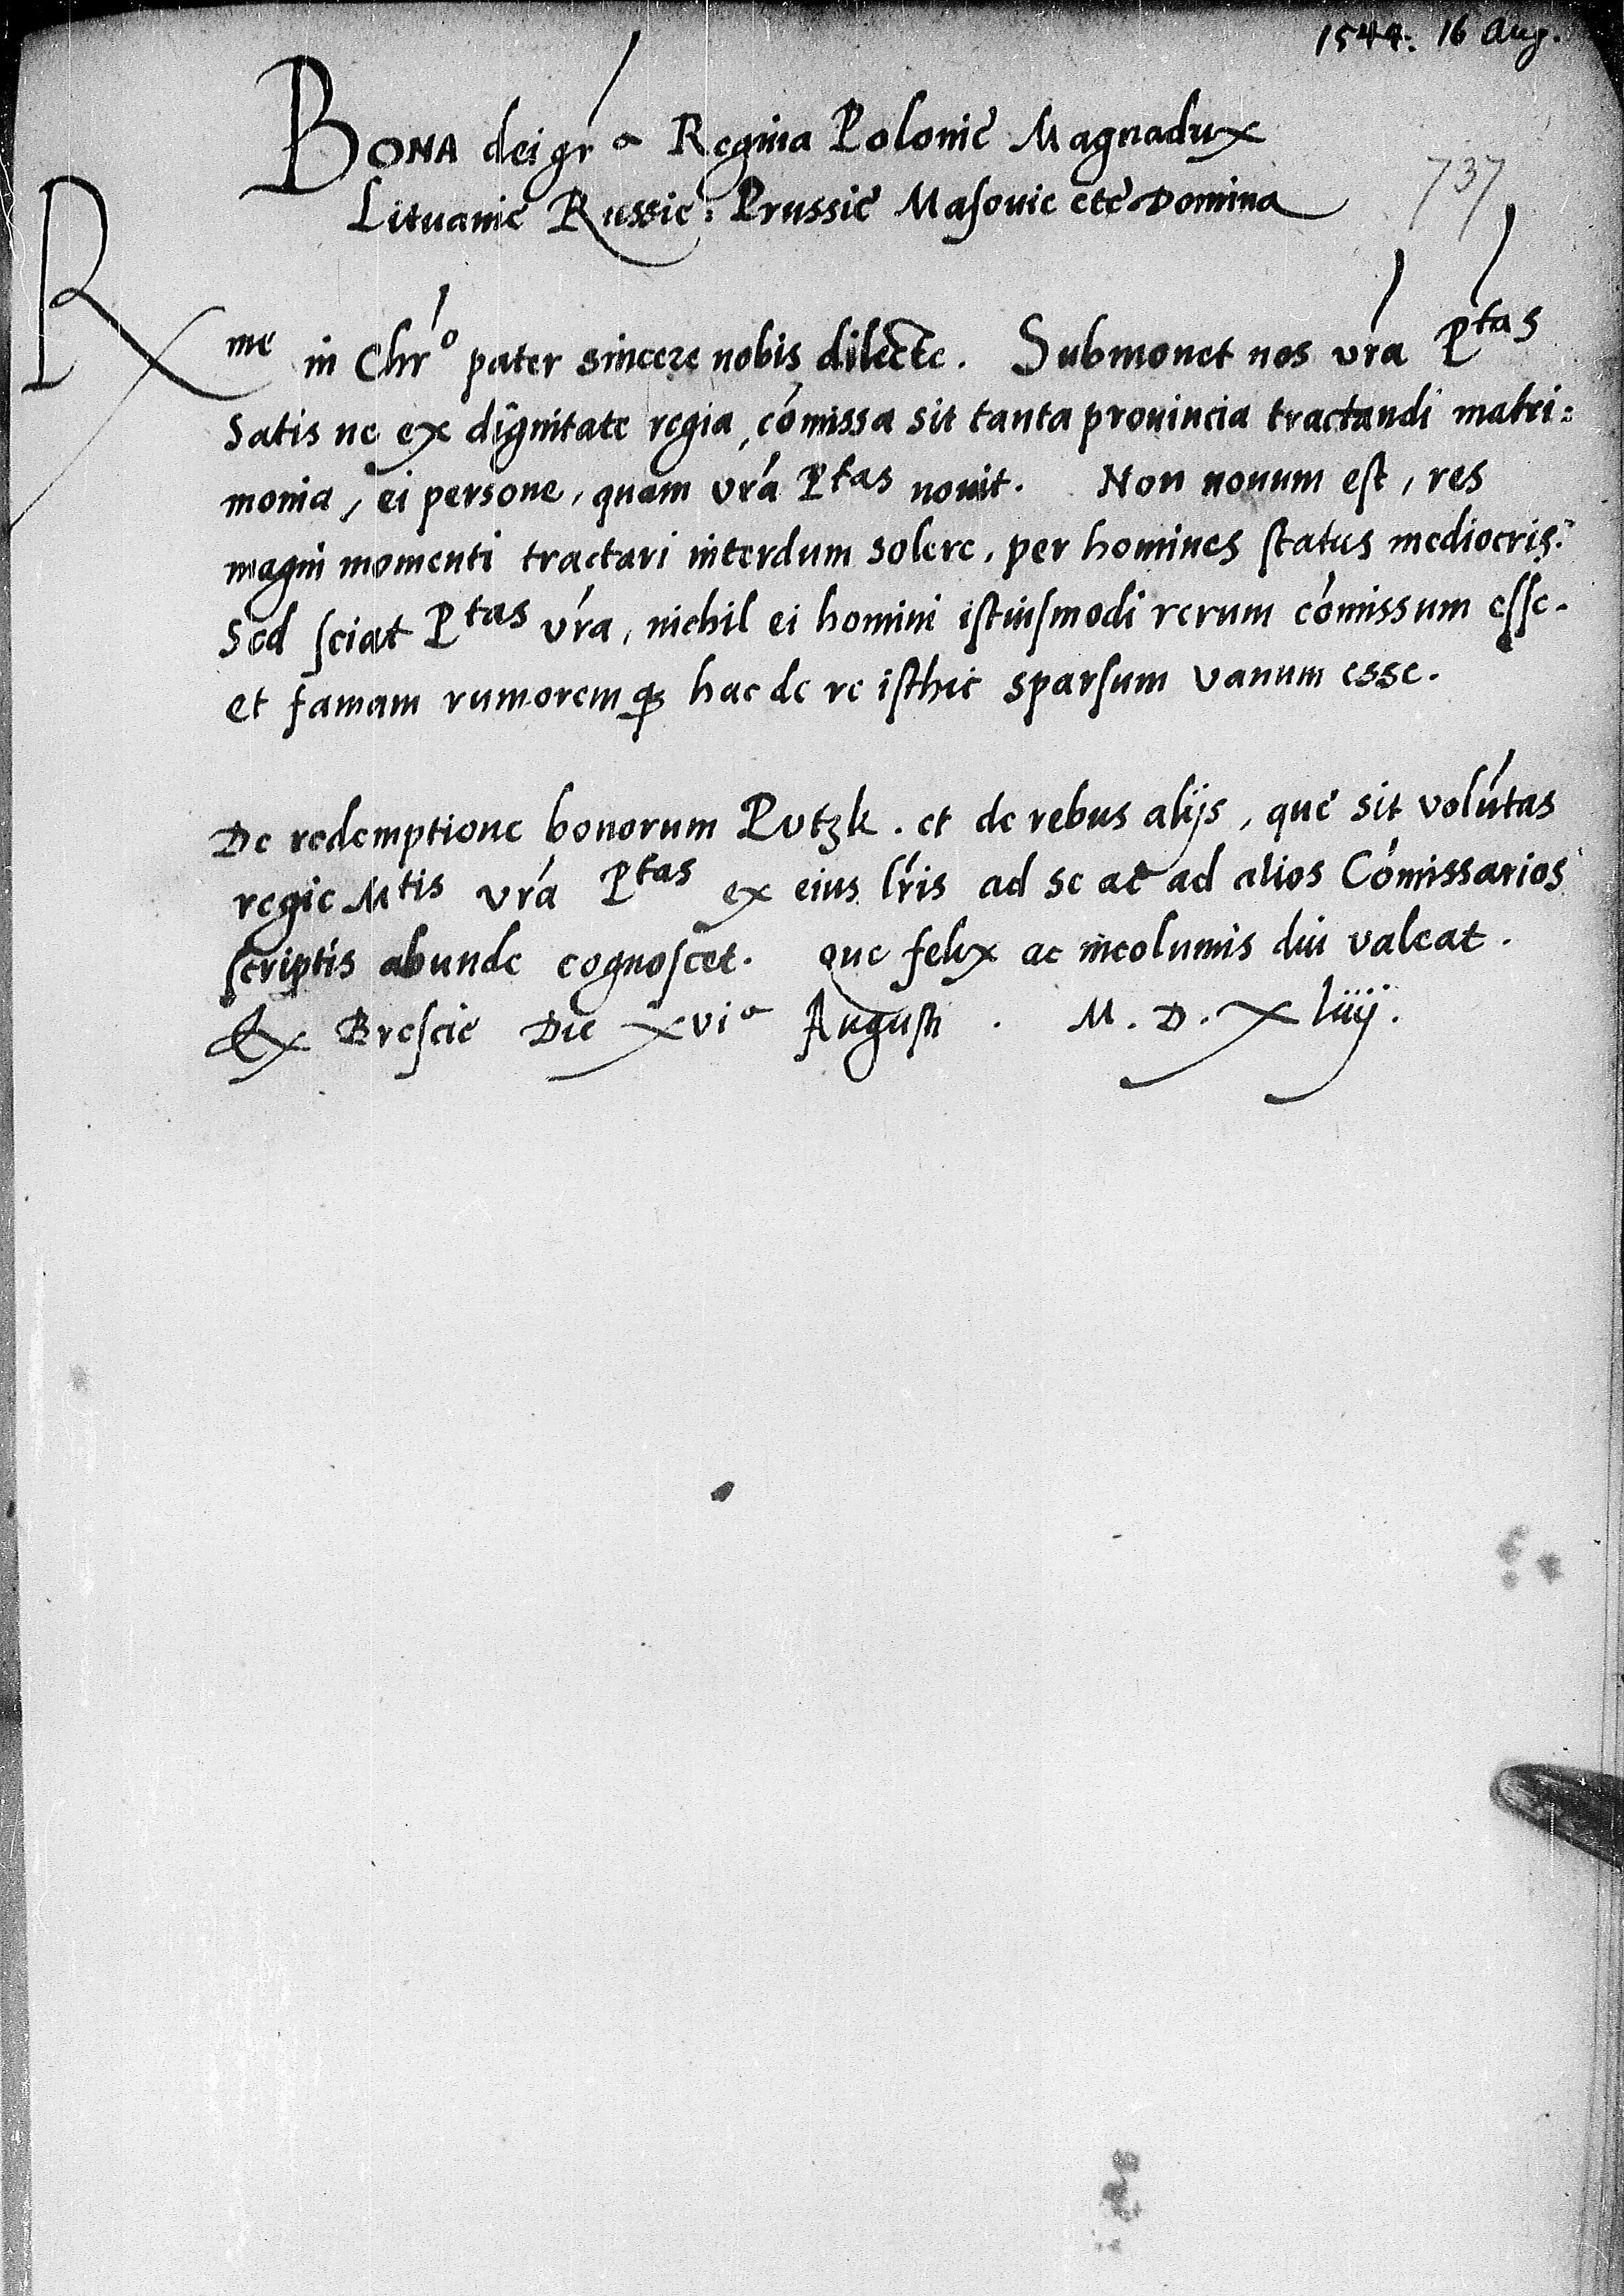 1544. 16 Aug.
BONA dei gr̃a Regina Poloniẹ Magnadux
737
Lituaniẹ Russiẹ: Prussiẹ Masouie etc Domina
Rme in Chr̃o pater sincere nobis dilecte. Submonet nos vr̃a Ptas
Satis ne ex dignitate regia, cõmissa sit tanta prouincia tractandi matri:
monia, ei persone, quam vr̃a Ptas nouit. Non nouum est, res
magni momenti tractari interdum solere, per homines status mediocris.
Sed sciat Ptas vr̃a, nichil ei homini istiusmodi rerum cõmissum esse.
et famam rumoremq; hac de re isthic sparsum vanum esse.
De redemptione bonorum Putzk. et de rebus alijs, que sit volũtas
regie Mtis vr̃a Ptas ex eius lr̃is ad se ac ad alios Cõmissarios
scriptis abunde cognoscet. que felix ac incolumis diu valeat.
Ex Brescie Die xvia Augusti. M. D. Xliiij.